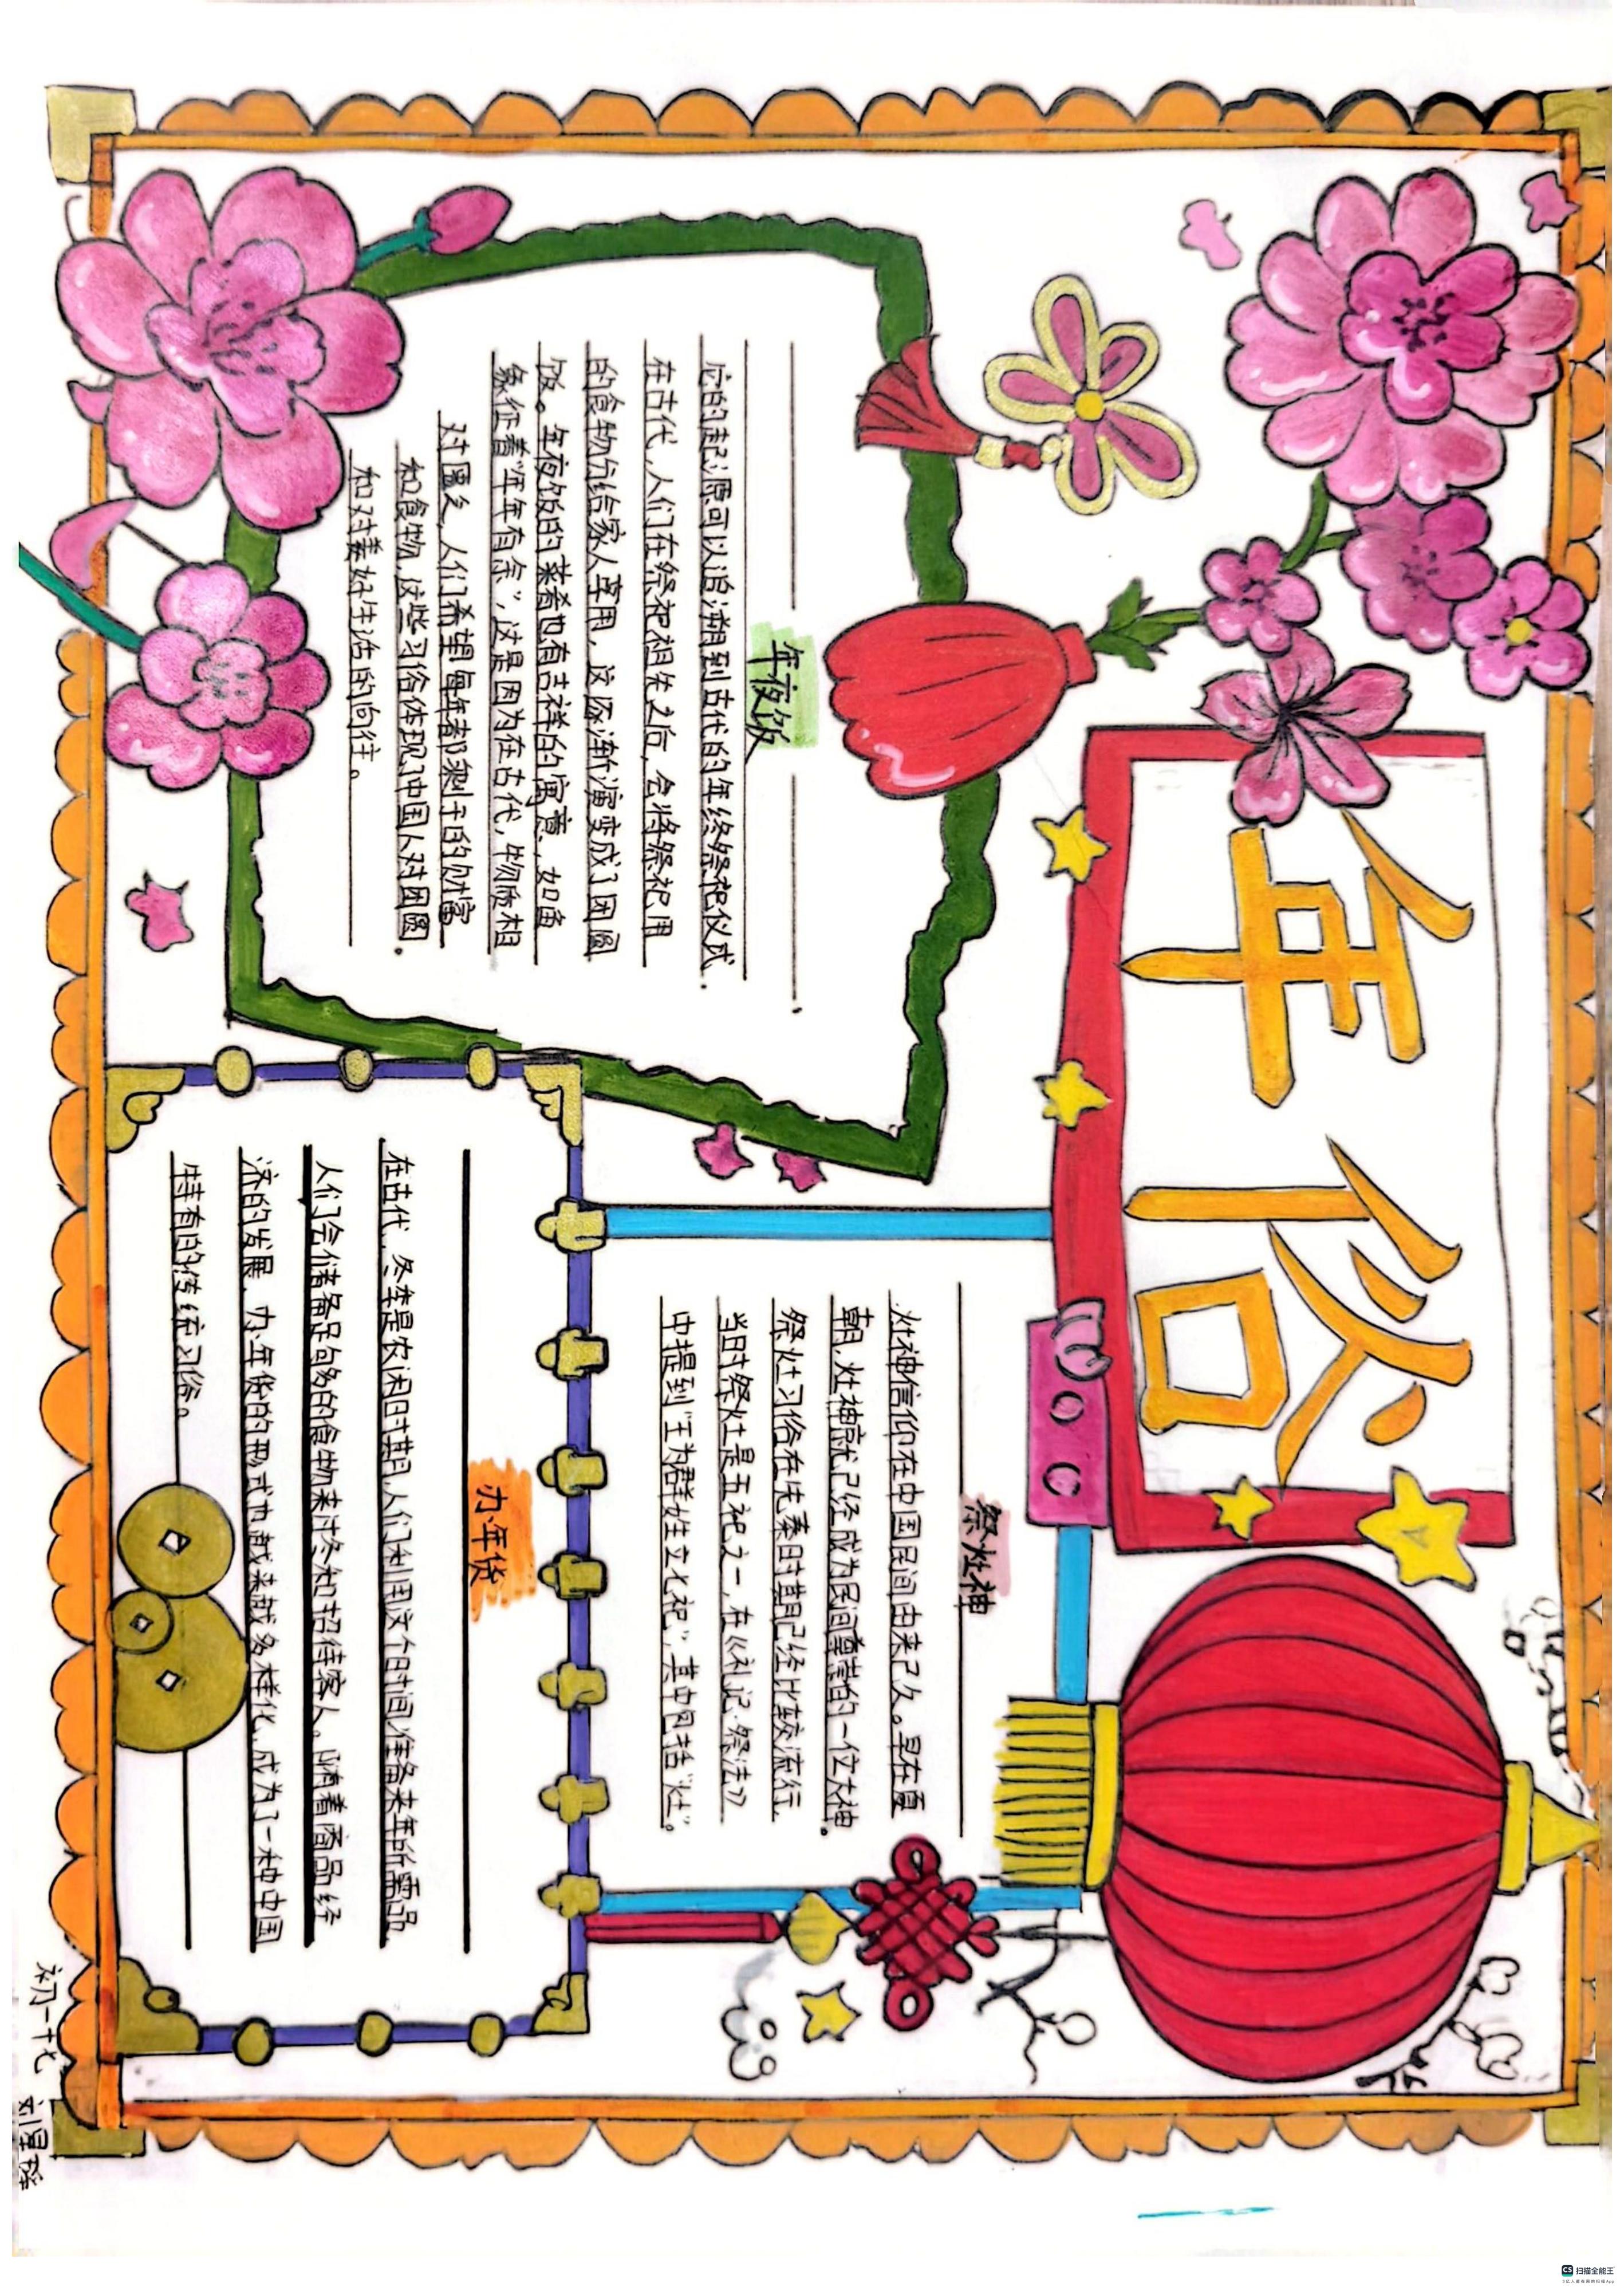 年俗
年夜饭
它的起源可以追溯到古代的年终祭祀仪式.
在古代,人们在祭祀祖先之后,会将祭祀用
的食物分给家人享用,这逐渐演变成了团圆
饭。年夜饭的菜肴也有吉祥的寓意,如鱼
象征着“年年有余”,这是因为在古代,物质相
对匮乏,人们希望每年都剩于的财富
和食物,这些习俗体现了中国人对团圆.
和对美好生活的向往。
祭灶神
灶神信仰在中国民间由来已久。早在夏
朝,灶神就已经成为民间尊崇的一位大神.
祭灶习俗在先秦时期已经比较流行.
当时祭灶是五祀之一,在《礼记·祭法》
中提到“王为群姓立七祀”,其中包括“灶”。
办年货
在古代,冬季是农闲时期,人们利用这个时间准备来年所需品
人们会储备足够的食物来过冬和招待客人。随着商品经
济的发展,办年货的形式也越来越多样化,成为了一种中国
特有的传统习俗。
初一十七
扫描全能王